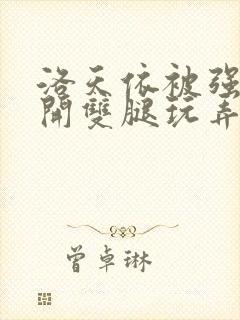 洛天依被强
開雙腿玩弄
曾卓琳